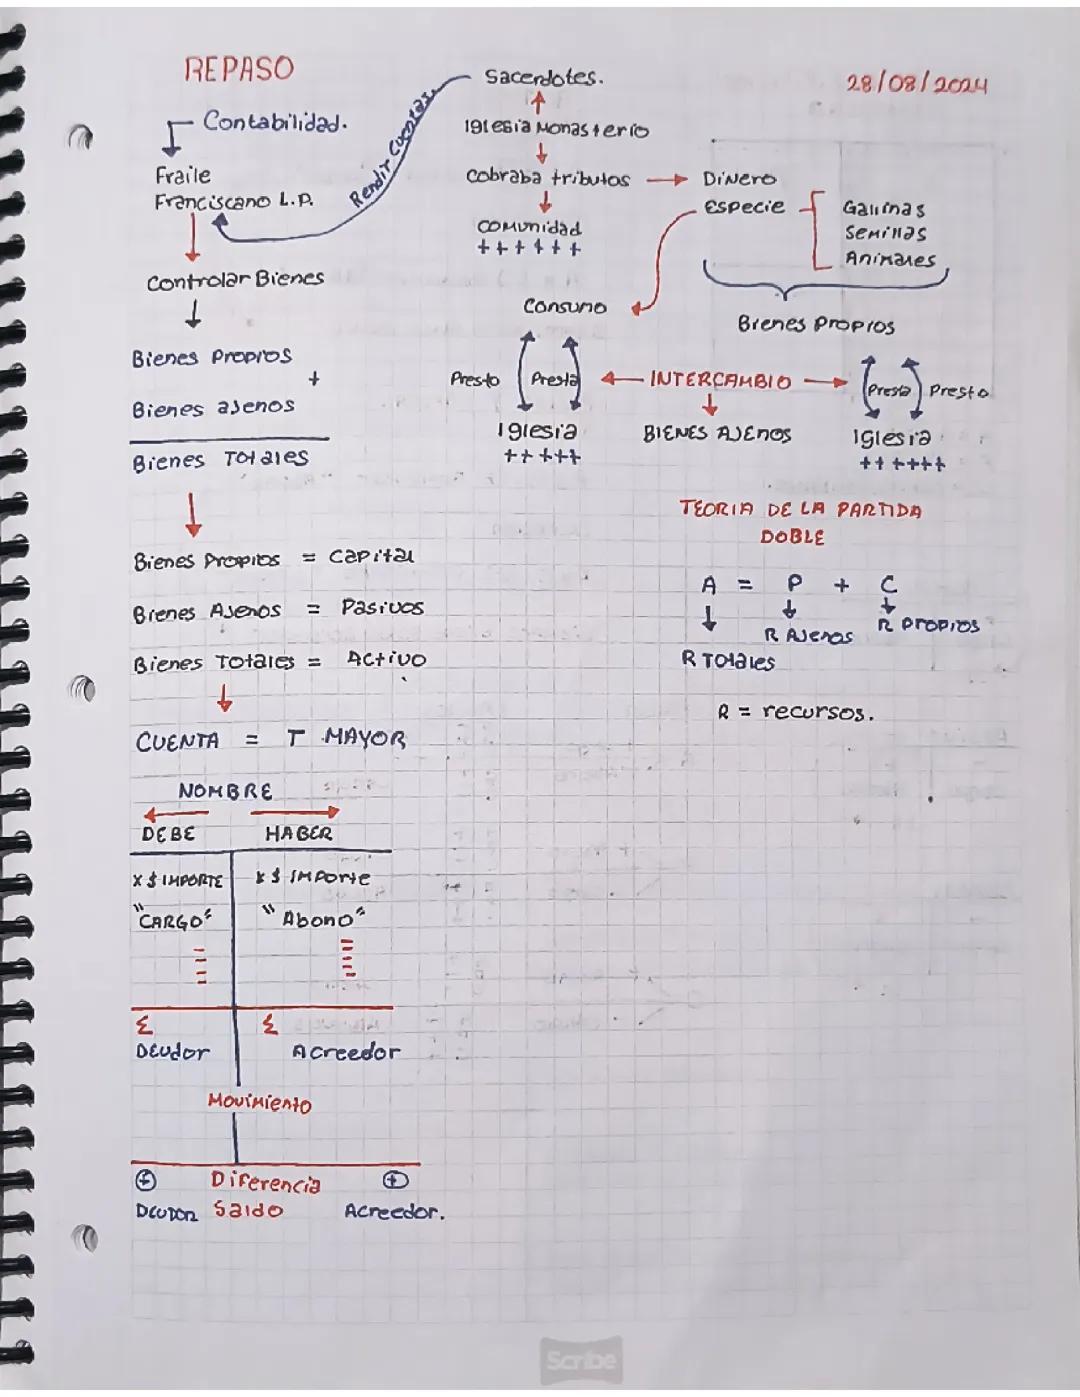 REPASO
28/08/2024
Contabilidad.
Fraile
Franciscano L.P.
Rendir Cuentas.
Sacerdotes.
Iglesia Monasterio
Cobraba tributos
Dinero
Especie
Gallinas
Semillas
Animales
Comunidad
++++++
Bienes Propios
Consumo
Controlar Bienes
Bienes Propios
+
Bienes ajenos
Bienes Totales
Presto
Presta
INTERCAMBIO
Presta
Presto
Iglesia
+++++
BIENES AJENOS
Iglesia
++++++
TEORIA DE LA PARTIDA
DOBLE
A = P + C
R Ajenos
R Propios
R Totales
R = recursos.
Bienes Propios = Capital
Bienes Ajenos = Pasivos
Bienes Totales = Activo
CUENTA = T MAYOR
NOMBRE
DEBE
HABER
X $ IMPORTE
X $ IMPorte
"CARGO"
"Abono"
Σ
Σ
Deudor
Acreedor
Movimiento
+
Diferencia
+
Deudor
Saldo
Acreedor.
Scribe